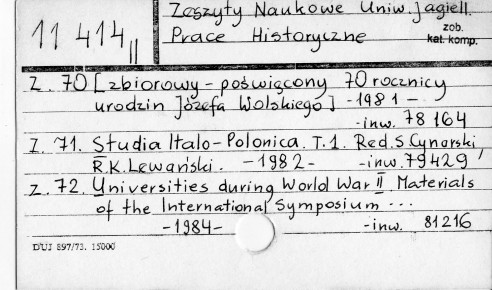 Zeszyty Naukowe Uniw. Jagiell.
11 414 II
Prace Historyczne
zob.
kat. komp.
Z. 70 [zbiorowy – poświęcony 70 rocznicy
urodzin Józefa Wolskiego] – 1981 –
– inw. 78 164
Z. 71. Studia Italo-Polonica. T. 1. Red. S Cynarski,
R.K. Lewański. – 1982 – – inw. 79429
Z. 72. Universities during World War II Materials
of the International Symposium ...
– 1984 – – inw. 81216
DUJ 897/73. 15000